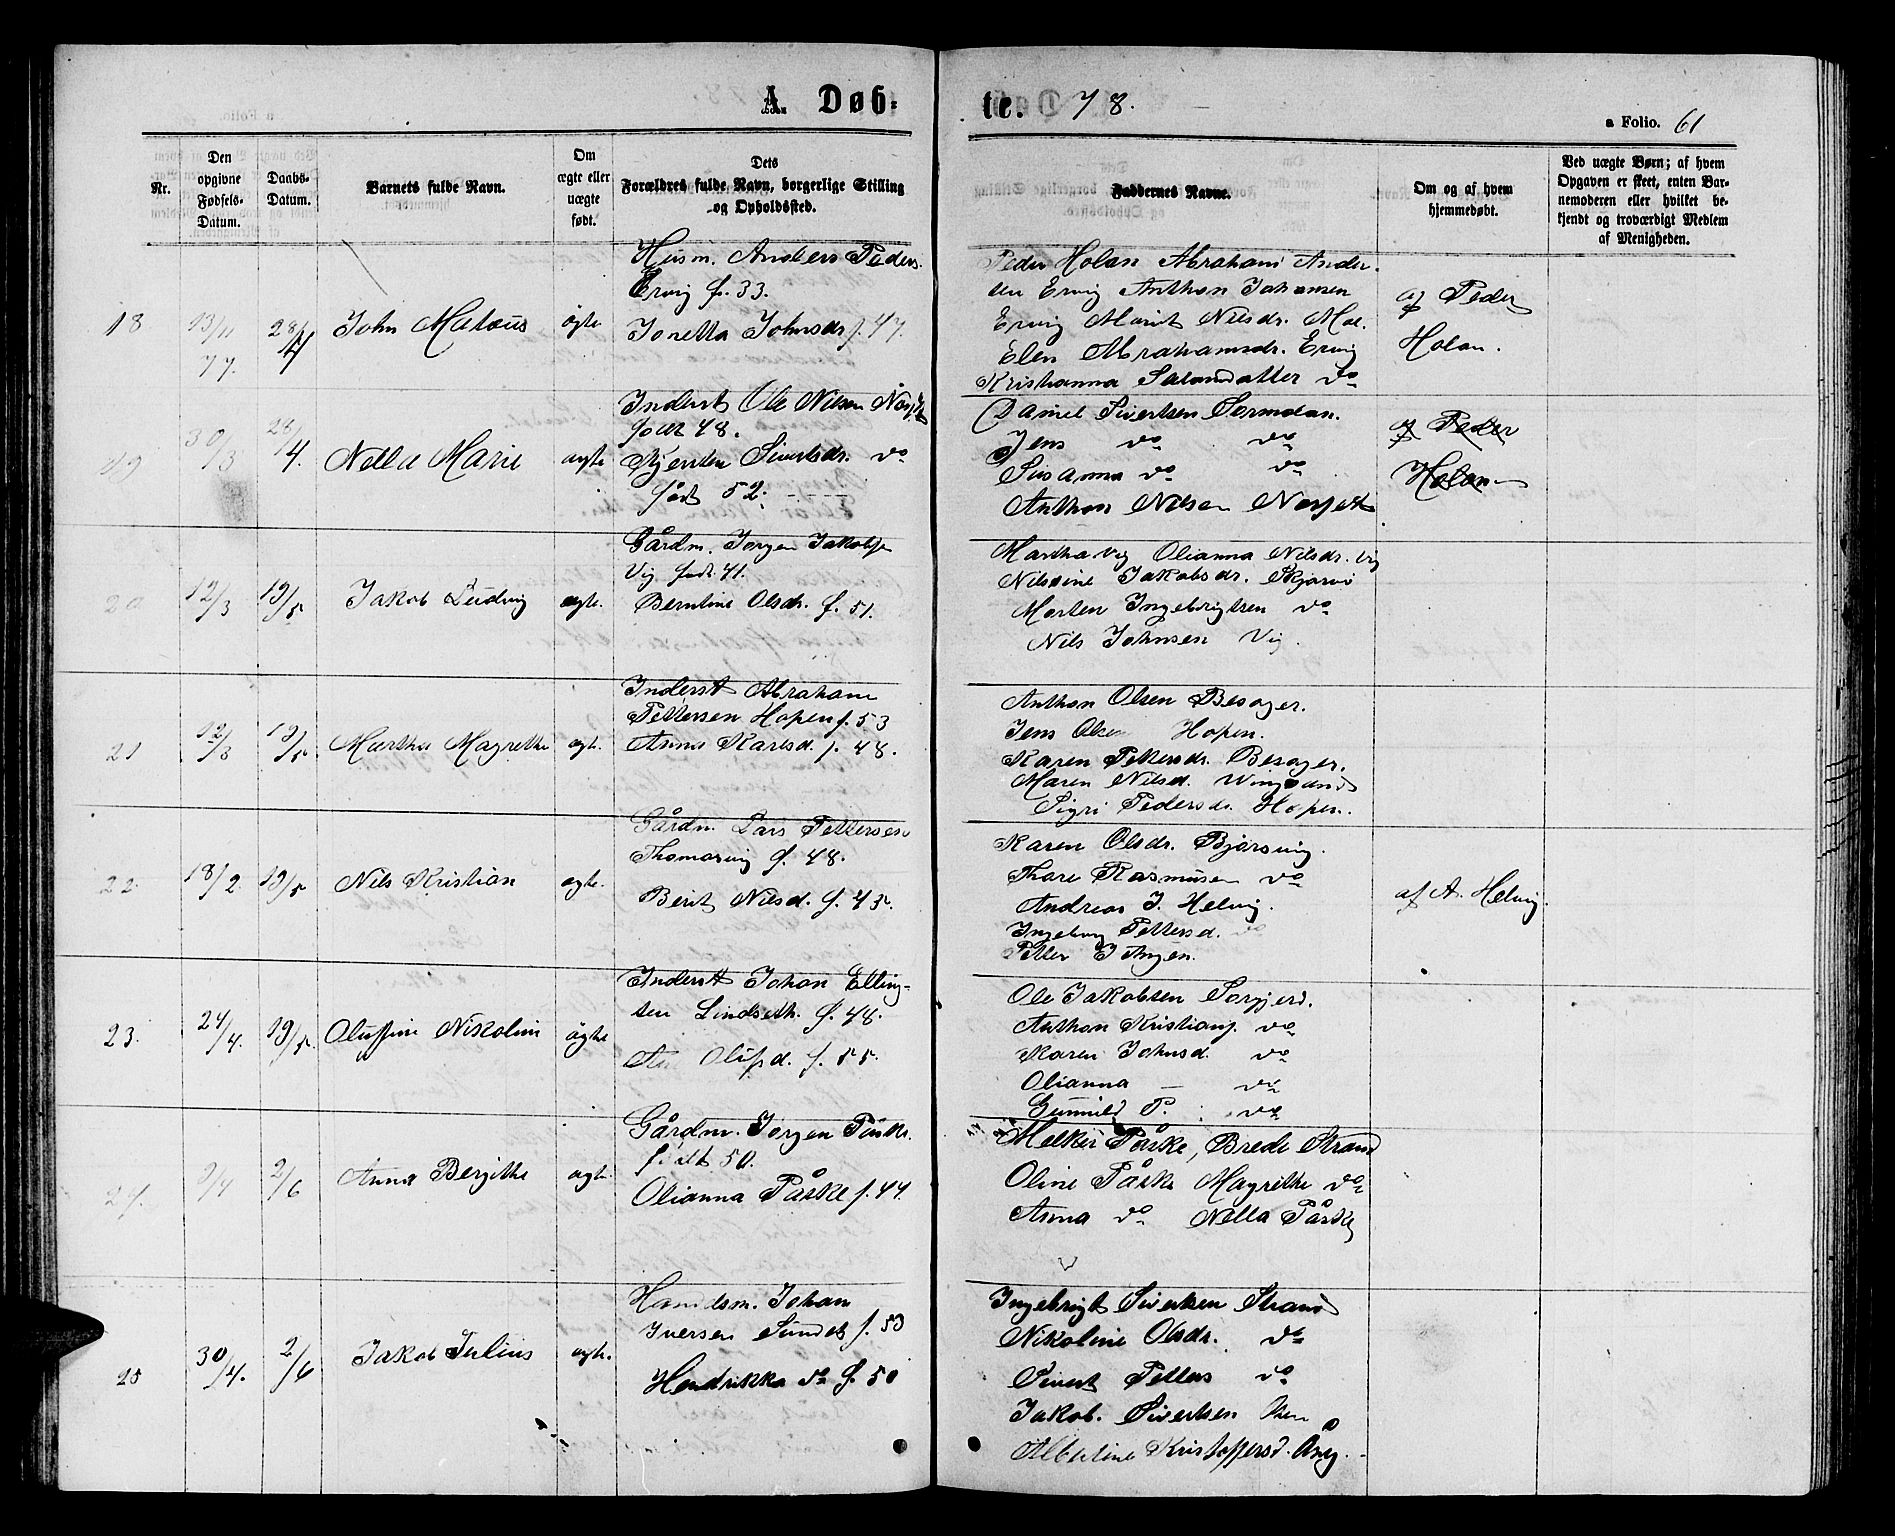 A. Døb-
te. 78.
a Folio. 61
Nr.
Den opgivne Fødsels-Datum.
Daabs-Datum.
Barnets fulde Navn.
Om ægte eller uægte født.
Dets Forældres fulde Navn, borgerlige Stilling og Opholdssted.
Faddernes Navne.
Om og af hvem hjemmedøbt.
Ved uægte Børn; af hvem Opgaven er skeet, enten Barnemoderen eller hvilket bekjendt og troværdigt Medlem af Menigheden.
18
13/11 77.
28/4
John Mateus
ägte
Husm. Anders Peders.
Ervig f. 33.
Jonetta Johnsdr f. 47.
Peder Holan Abraham Ander-
sen Ervig Anthon Johansen
Ervig Marit Nilsdr. Moe.
Elen Abrahamsdr. Ervig
Kristianna Salamdatter do
af Peder
Holan.
19
30/3
28/4.
Nella Marie
ægte
Inderst Ole Nilsen
født 48.
Kjersten Sivertsdr. do
født 52.
Daniel Sivertsen Sormolan.
Jens do do
Susanna do do
Anthon Nilsen
af Peder
Holan
20
12/3
19/5
Jakob Ludvig
ægte.
Gårdm. Jorgen Jakobsen
Vig født 41.
Berntine Olsdr. f. 51.
Martha Vig Olianna Nilsdr. Vig
Nilsine Jakobsdr. Skjærvö
Morten Ingebrigtsen do
Nils Johnsen Vig.
21
12/3
19/5.
Martha Magrethe
ægte.
Inderst Abraham
Pettersen Hopen f. 53
Anna Karlsd. f. 48.
Anthon Olsen Besager.
Jens Olsen Hopen.
Karen Pettersdr. Besager.
Maren Nilsd. Wingsand
Sigri Pedersdr. Hopen.
22.
18/2.
19/5
Nils Kristian
ægte.
Gårdm. Lars Pettersen
Thomasvig f. 48.
Berit Nilsd. f. 45.
Karen Olsdr. Bjørsvig.
Thore Rasmusen do
Andreas J. Helvig.
Ingeborg Pettersd. do
Petter
af A. Helvig.
23.
24/4.
19/5.
Oluffine Nikoline
ägte
Inderst Johan Elling-
sen Lindseth. f. 48.
Olufsd. f. 55.
Ole Jakobsen Sorgjerd.
Anthon Kristians. do
Karen Johnsd. do
Olianna — do
Gunnild P. do
24.
9/4
2/6
Anna Bergithe
ægte.
Gårdm. Jorgen Påske.
födt 50.
Olianna Påske f. 44
Melkior Påske, Brede Strand
Oline Påske Magrethe do
Anna do Nella Påske
25
30/4.
2/6
Jakob Julius
ægte.
Handsm. Johan
Iversen Sundet f. 53
Hendrikka do f. 50
Ingebrigt Sivertsen Strand
Nikoline Olsdr. do
Sivert Petters do
Jakob. Sivertsen
Albertine Kristoffersd.